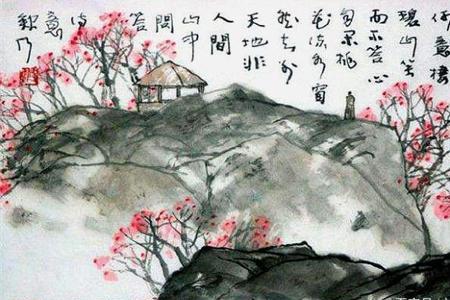 何意棲
碧山笑
而不答心
自閑桃
花流水窅
然去別
天地非
人間
山中
問
答
詩
意